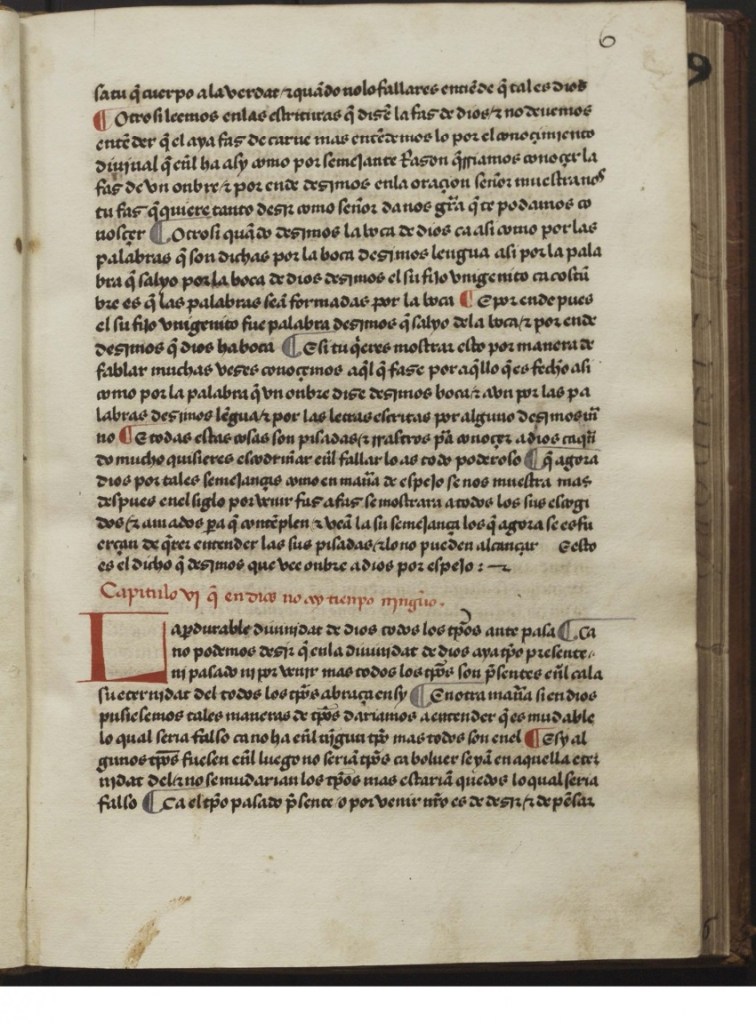 6
9
sa tu q̃ cuerpo a la verdat ⁊ quãdo no lo fallares entiẽde q̃ tal es dios
¶ Otrosi leemos en las escrituras q̃ dizẽ la faz de dios ⁊ no deuemos
entẽder q̃ el aya faz de carne mas entẽdemos lo por el conosçimiento
diuinal q̃ en̄l ha asy como por semejante Razon q̃riamos conosçer la
faz de vn onbre ⁊ por ende dezimos en la oraçion señor muestranos
tu faz q̃ quiere tanto dezir como señor da nos gr̃a q̃ te podamos co
nosçer ¶ Otrosi quãdo dezimos la boca de dios ca asi como por las
palabras q̃ son dichas por la boca dezimos lengua asi por la pala
bra q̃ salyo por la boca de dios dezimos el su fijo vnigenito ca costũ
bre es q̃ las palabras seã formadas por la boca ¶ E por ende pues
el su fijo vnigenito fue palabra dezimos q̃ salyo de la boca ⁊ por ende
dezimos q̃ dios ha boca ¶ E si tu q̃eres mostrar esto por manera de
fablar muchas vezes conosçemos aq̃l q̃ faze por aq̃llo q̃ es fecho asi
como por la palabra q̃ vn onbre dize dezimos boca ⁊ avn por las pa
labras dezimos lẽgua ⁊ por las letras escritas por alguno dezimos m̃
no ¶ E todas estas cosas son pisadas ⁊ rrastros pa conosçer a dios ca q̃n
do mucho quisieres escodriñar en̄l fallar lo as todo poderoso ¶ q̃ agora
dios por tales semejanças como en mañа de espejo se nos muestra mas
despues en el siglo por venir faz a faz se mostrara a todos los sus escogi
dos ⁊ amados para q̃ contẽplen ⁊ veã la su semejança los q̃ agora se esfu
erçan de q̃rer entender las sus pisadas ⁊ lo no pueden alcançar E esto
es el dicho q̃ dezimos que vee onbre a dios por espejo :~
Capitulo vj q̃ en dios no ay tienpo ningũo.
La perdurable diuinidat de dios todos los tp̃os ante pasa ¶ Ca
no podemos dezir q̃ en la diuinidat de dios aya tp̃o presente
ni pasado ni por venir mas todos los tp̃os son p̃sentes en̄l ca la
su eternidat del todos los tp̃os abraça en sy ¶ E en otra mañа si en dios
pusiesemos tales maneras de tp̃os dariamos a entender q̃ es mudable
lo qual seria falso ca no ha en̄l nĩgun tp̃o mas todos son en el ¶ E sy al
gunos tp̃os fuesen en̄l luego no seriã tp̃os ca boluer se yã en aquella eter
nidat del ⁊ no se mudarian los tp̃os mas estariã quedos lo qual seria
falso ¶ Ca el tp̃o pasado p̃sente o por venir nr̃o es de dezir ⁊ de pẽsar